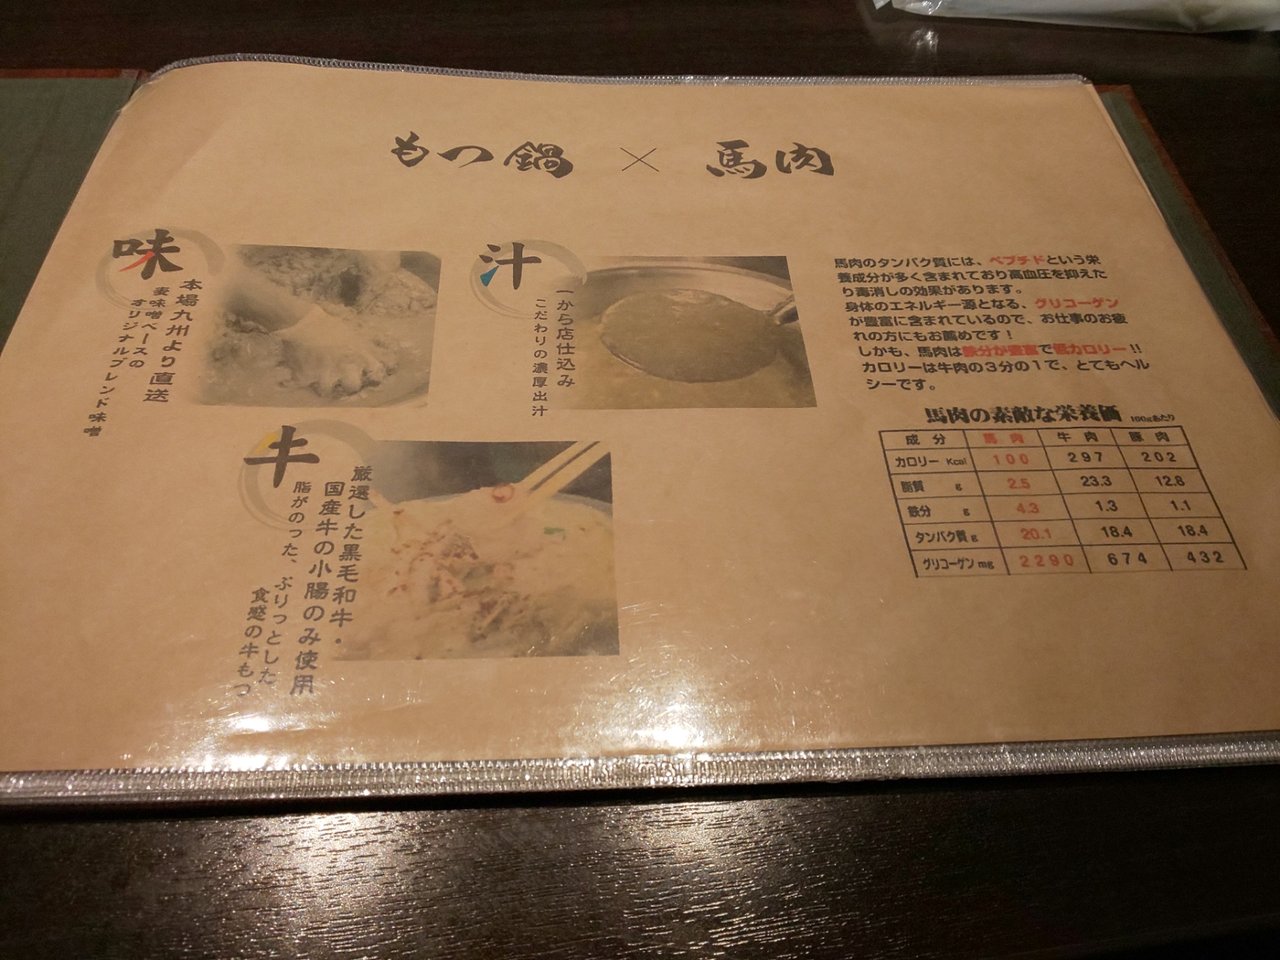 もつ鍋 × 馬肉
味
本場九州より直送
麦味噌ベースの
オリジナルブレンド味噌
汁
一から店仕込み
こだわりの濃厚出汁
牛
厳選した黒毛和牛・
国産牛の小腸のみ使用
脂がのった、ぷりっとした
食感の牛もつ
馬肉のタンパク質には、ペプチドという栄
養成分が多く含まれており高血圧を抑えた
り毒消しの効果があります。
身体のエネルギー源となる、グリコーゲン
が豊富に含まれているので、お仕事のお疲
れの方にもお薦めです！
しかも、馬肉は鉄分が豊富で低カロリー!!
カロリーは牛肉の3分の1で、とてもヘル
シーです。
馬肉の素敵な栄養価 100gあたり
成分 馬肉 牛肉 豚肉
カロリー Kcal 100 297 202
脂質 g 2.5 23.3 12.8
鉄分 g 4.3 1.3 1.1
タンパク質 g 20.1 18.4 18.4
グリコーゲン mg 2290 674 432